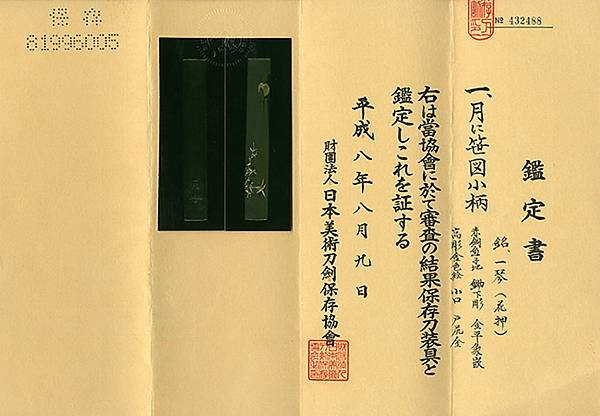 鑑定書
№ 432488
一、月に笹図小柄
銘、一琴(花押)
赤銅磨地 鋤下彫 金平象嵌
高彫金色絵 小口 戸尻金
右は當協會に於て審査の結果保存刀装具と
鑑定しこれを証する
平成八年八月九日
財團法人 日本美術刀劍保存協會
保存
81996005